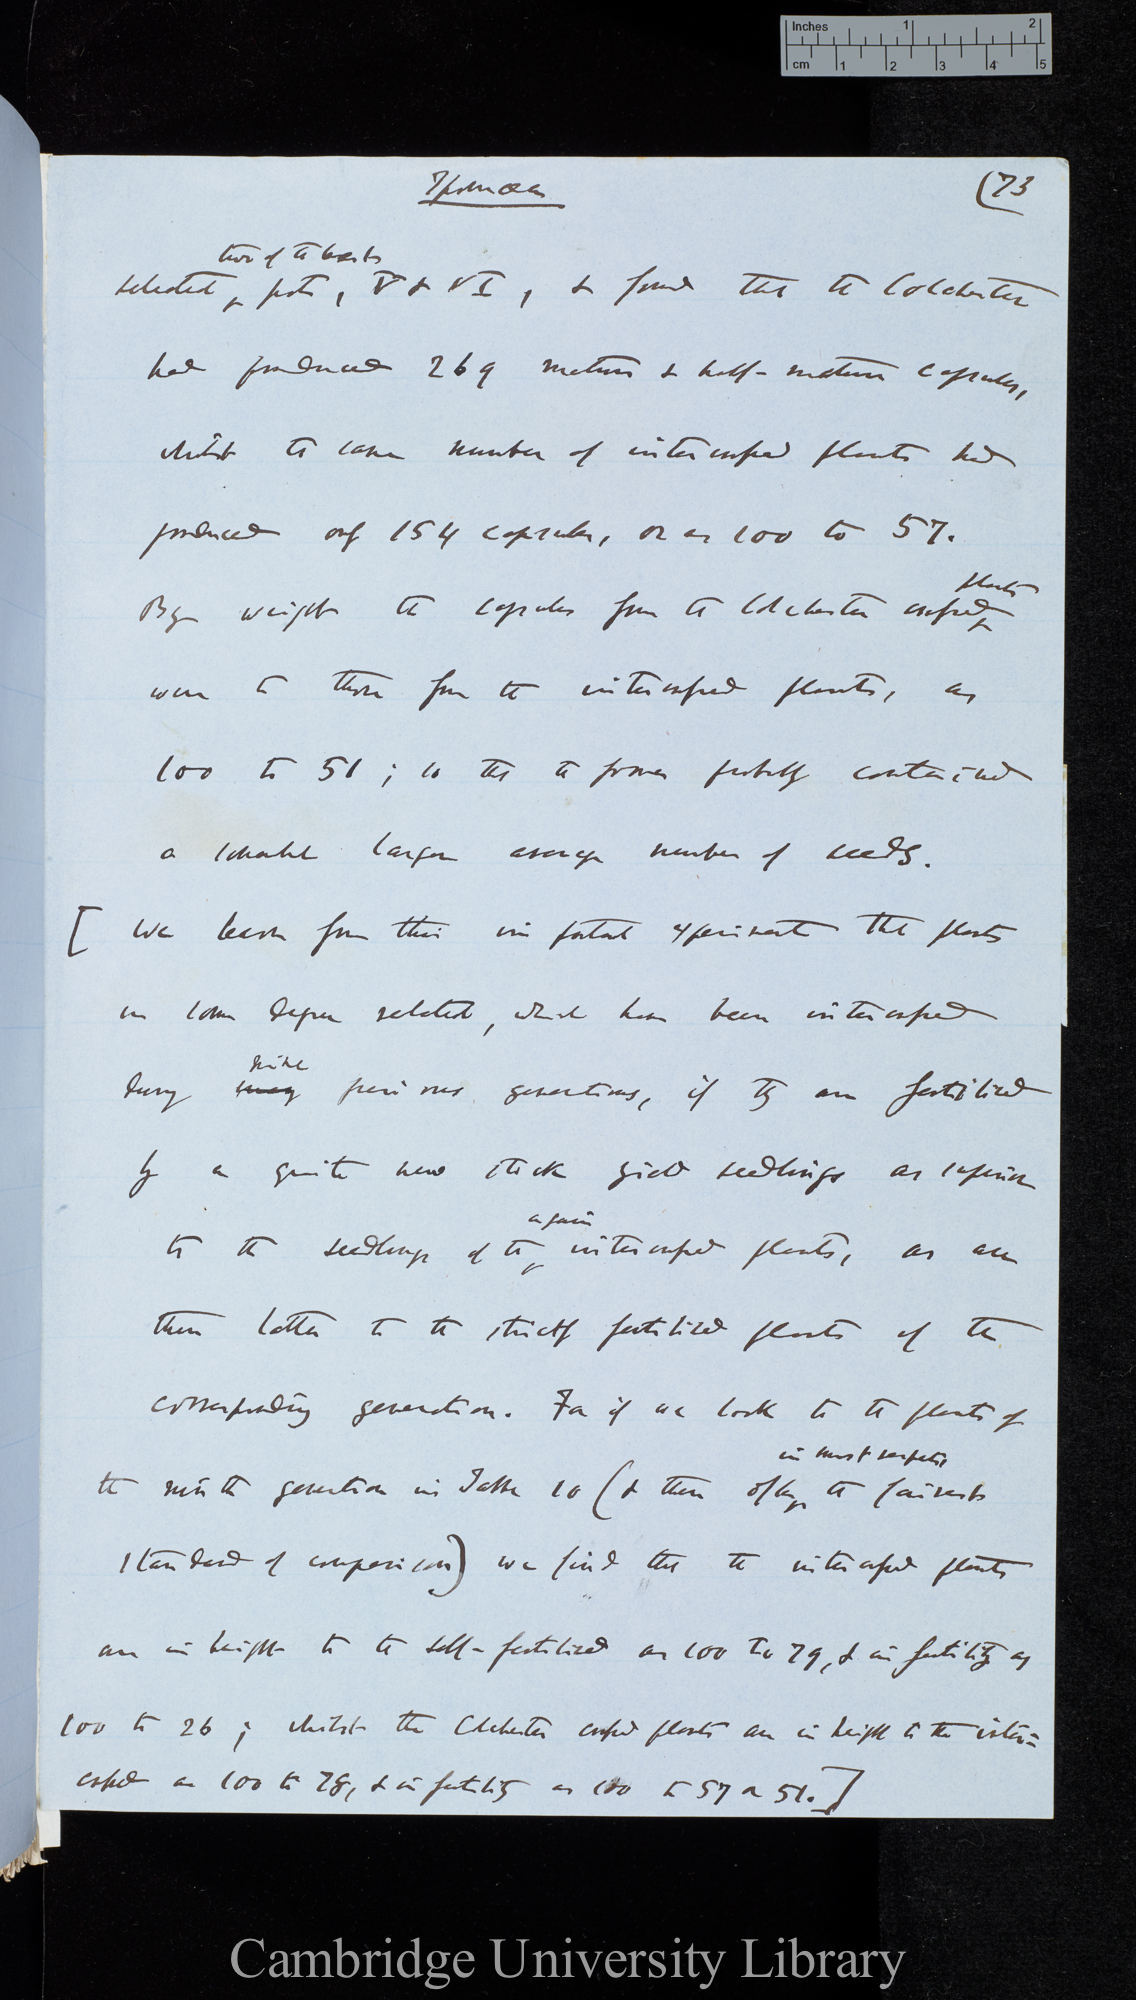 Inches 1 2
cm 1 2 3 4 5
Ipomoea
(73
two of the best
selected pots, V & VI, & found that the Colchester
had produced 269 mature & half-mature capsules,
whilst the same number of intercrossed plants had
produced only 154 capsules, or as 100 to 57.
plants
By weight the capsules from the Colchester crossed
were to those from the intercrossed plants, as
100 to 51; so that the former probably contained
a somewhat larger average number of seeds.
[We learn from this important experiment that plants
in some degree related, which have been intercrossed
nine
during many previous generations, if they are fertilised
by a quite new stock yield seedlings as superior
again
to the seedlings of the intercrossed plants, as are
these latter to the strictly fertilised plants of the
corresponding generation. For if we look to the plants of
in most respects
the ninth generation in Table 10 (& these the fairest
standard of comparison) we find that the intercrossed plants
are in height to the self-fertilised as 100 to 79, & in fertility as
100 to 26; whilst the Colchester crossed plants are in height to the inter=
crossed as 100 to 78, & in fertility as 100 to 57 or 51.]
Cambridge University Library